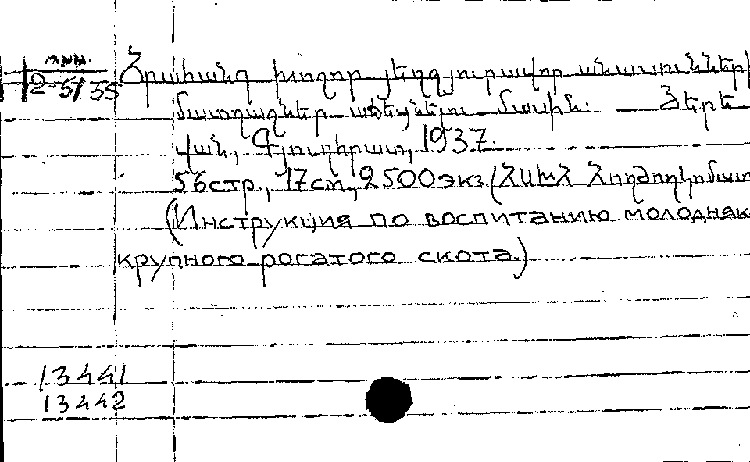 2-5135
Հրահանգ խոշոր յեղջյուրավոր անասունների
մատղաշներ աճեցնելու մասին. Յերե-
վան, Գյուղհրատ, 1937.
56стр., 17см, 2500экз. (ՀԽՍՀ Հողժողկոմատ
(Инструкция по воспитанию молодняк
крупного рогатого скота.)
13441
13442